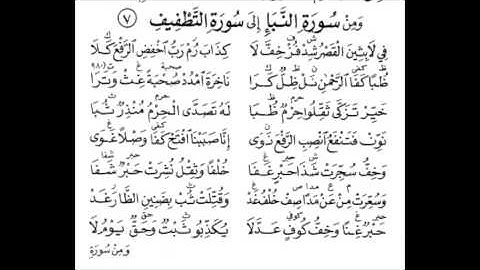 وَمِنْ سُورَةِ النَّبَإِ إِلَى سُورَةِ التَّطْفِيفِ ٧
فِي لَابِثِينَ الْقَصْرُ شِدْ فُزْ خِفَّ لَا كِذَابَ رُمْ رَبُّ اخْفِضِ الرَّفْعَ كَلَا
ظُبًا كَفَا الرَّحْمٰنِ نَلْ ظِلٌّ كَرَا نَاخِرَةً امْدُدْ صُحْبَةٌ غِثْ وَتَرَا
خَيِّرْ تَزَكَّى ثَقِّلُوا حِرْمٌ ظُبَا لَهُ تَصَدَّى الْحِرْمُ مُنْذِرٌ ثُبَا
نَوِّنْ فَتَنْفَعَ انْصِبِ الرَّفْعَ نَوَى إِنَّا صَبَبْنَا افْتَحْ كَفَا وَصْلًا غَوَى
وَخِفُّ سُجِّرَتْ شَذَا حَبْرٌ غَفَا خُلْفًا وَثِقْلُ نُشِرَتْ حَبْرٌ شَفَا
وَسُعِّرَتْ مِنْ عَنْ مَدًا صِفْ خُلْفُ غَدْ وَقُتِّلَتْ ثُبْ بِضَنِينِ الظَّا رَغَدْ
حَبْرٌ غِنًا وَخِفُّ كُوفٍ عَدَّلَا يُكَذِّبُو ثَبْتٌ وَحَقٌّ يَوْمُ لَا
وَمِنْ سُورَةِ